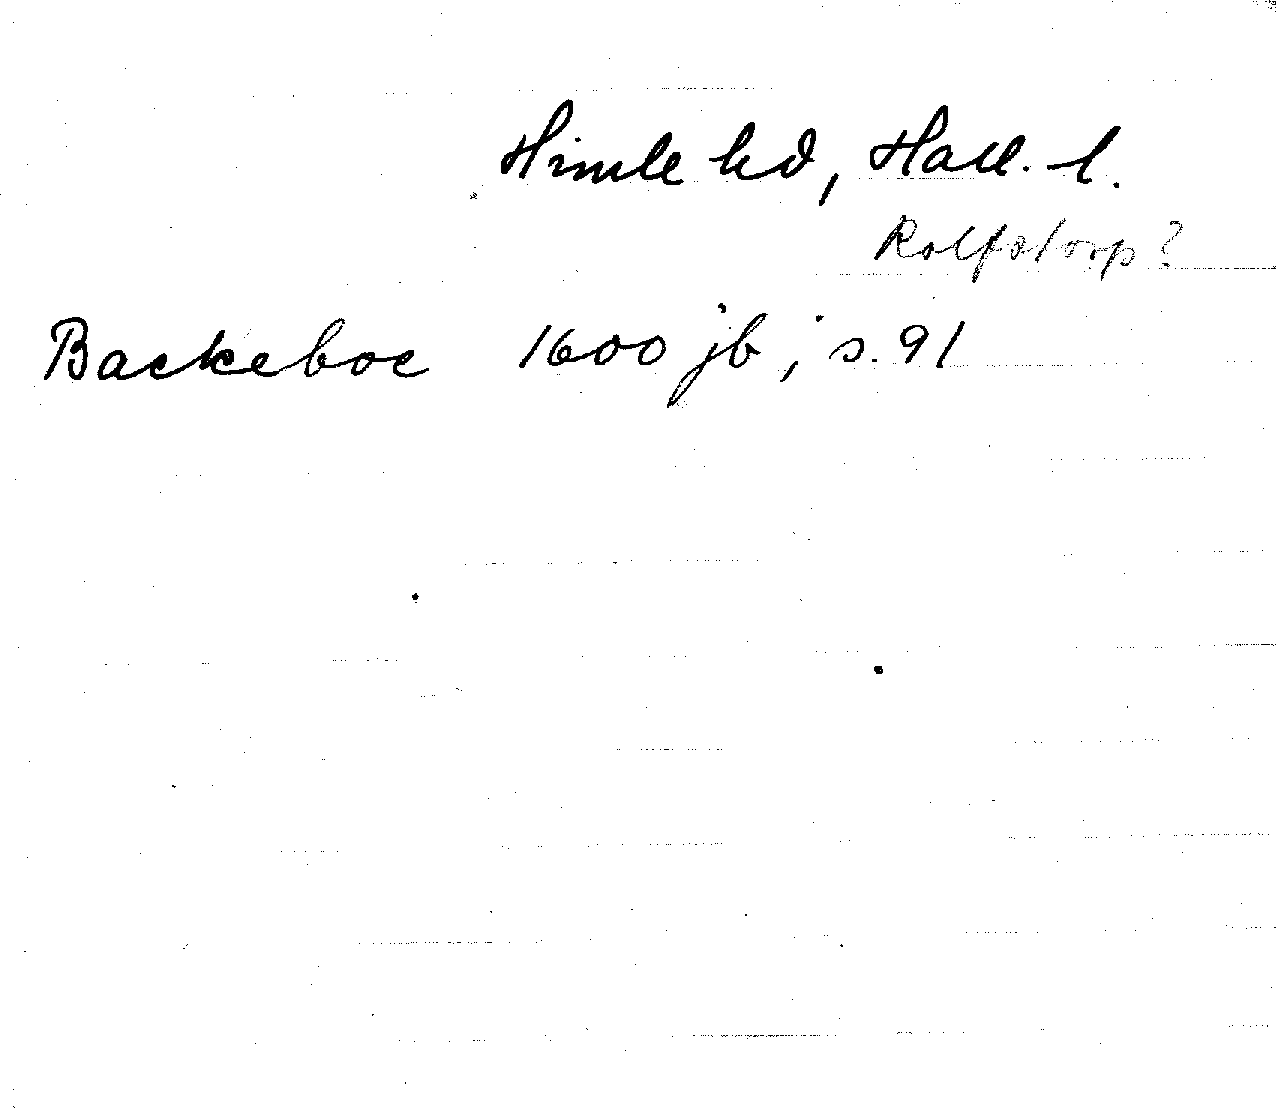 Himle hd, Hall. l.
Rolfstorp?
Backeboe 1600 jb; s. 91